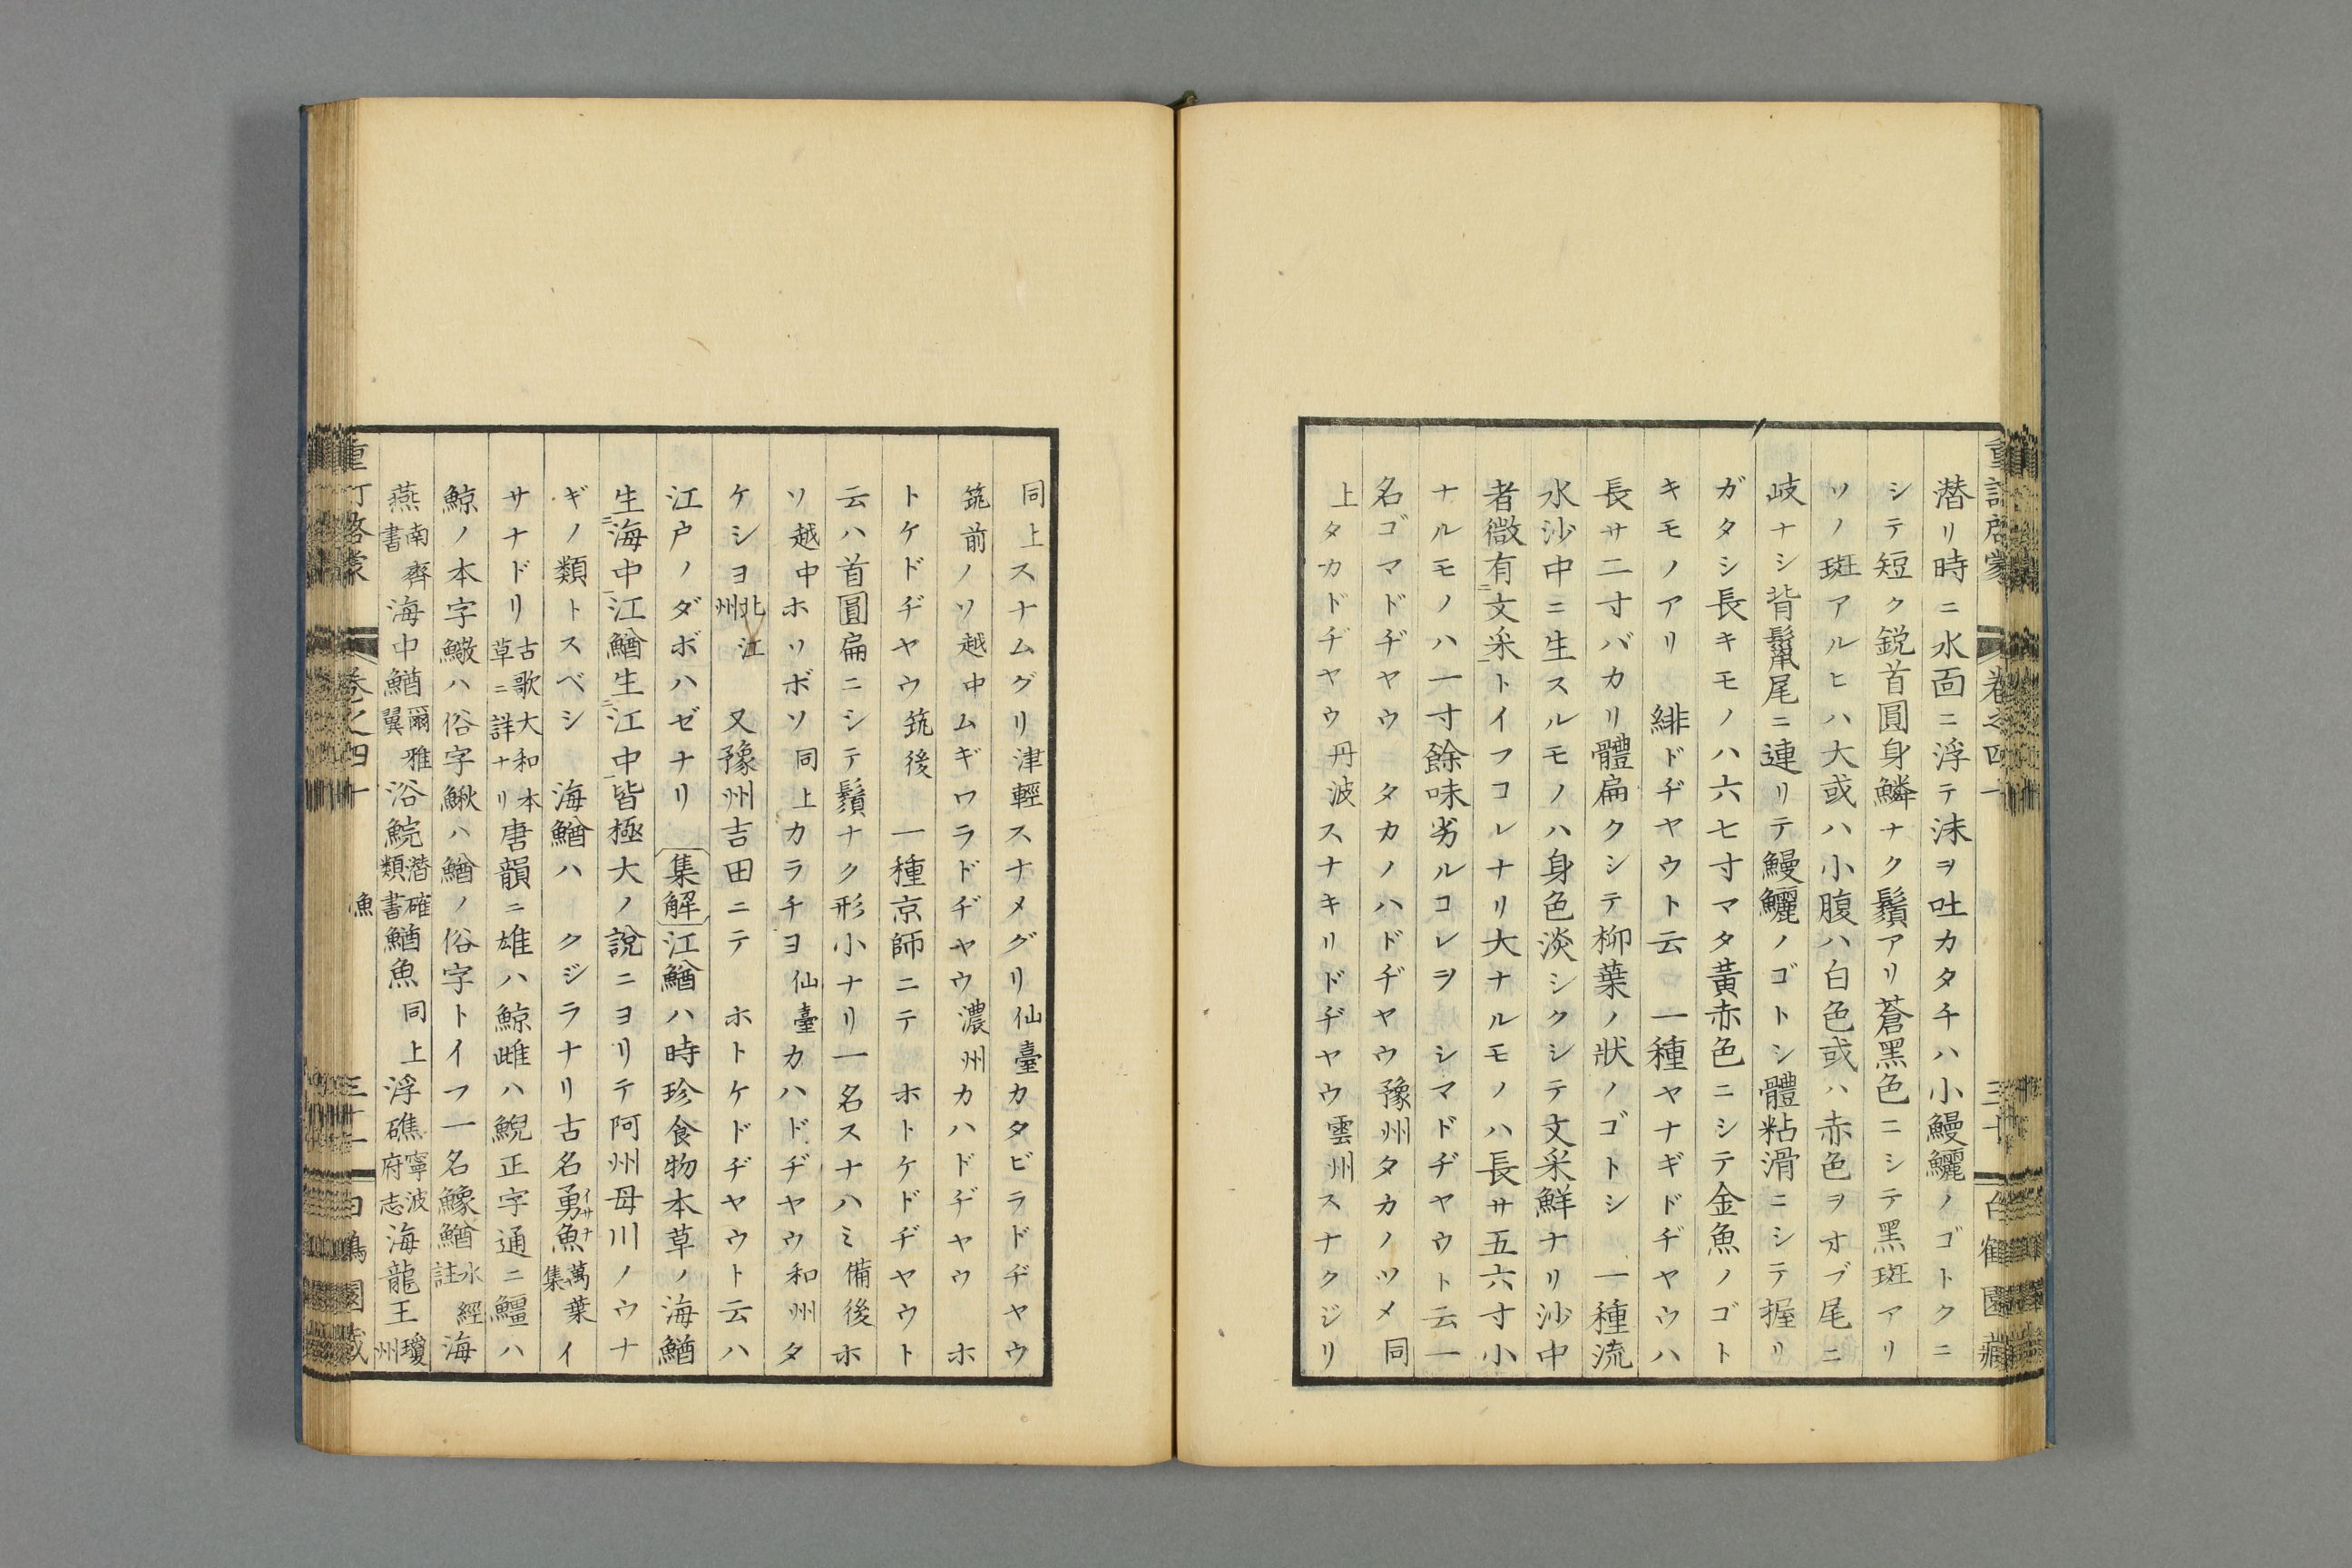 潜リ時ニ水面ニ浮テ沫ヲ吐カタチハ小鰻鱺ノゴトクニ
シテ短ク鋭首圓身鱗ナク鬚アリ蒼黑色ニシテ黑斑アリ
ソノ斑アルヒハ大或ハ小腹ハ白色或ハ赤色ヲオブ尾ニ
岐ナシ背鬣尾ニ連リテ鰻鱺ノゴトシ體粘滑ニシテ握リ
ガタシ長キモノハ六七寸マタ黃赤色ニシテ金魚ノゴト
キモノアリ 緋ドヂヤウト云 一種ヤナギドヂヤウハ
長サ二寸バカリ體扁クシテ柳葉ノ狀ノゴトシ 一種流
水沙中ニ生スルモノハ身色淡シクシテ文采鮮ナリ沙中
者微有二文采一トイフコレナリ大ナルモノハ長サ五六寸小
ナルモノハ一寸餘味劣ルコレヲ シマドヂヤウト云一
名ゴマドヂヤウ タカノハドヂヤウ豫州タカノツメ同
上タカドヂヤウ丹波スナキリドヂヤウ雲州スナクジリ
同上スナムグリ津輕スナメグリ仙臺カタビラドヂヤウ
筑前ノソ越中ムギワラドヂヤウ濃州カハドヂヤウ ホ
トケドヂヤウ筑後 一種京師ニテ ホトケドヂヤウト
云ハ首圓扁ニシテ鬚ナク形小ナリ一名スナハミ備後ホ
ソ越中ホソボソ同上カラチヨ仙臺カハドヂヤウ和州タ
ケシヨ江州北 又豫州吉田ニテ ホトケドヂヤウト云ハ
江戸ノダボハゼナリ 集解江鰌ハ時珍食物本草ノ海鰌
生二海中一江鰌生二江中一皆極大ノ說ニヨリテ阿州母川ノウナ
ギノ類トスベシ 海鰌ハ クジラナリ古名勇魚イサナ萬葉集イ
サナドリ古歌大和本草ニ詳ナリ唐韻ニ雄ハ鯨雌ハ鯢正字通ニ鱷ハ
鯨ノ本字鱍ハ俗字鰍ハ鰌ノ俗字トイフ一名鱌鰌水經註海
燕南齊書海中鰌爾雅翼浴鯇潜確類書鰌魚同上浮礁寧波府志海龍王瓊州
重訂啓蒙 卷之四十 三十 白鶴園藏
魚